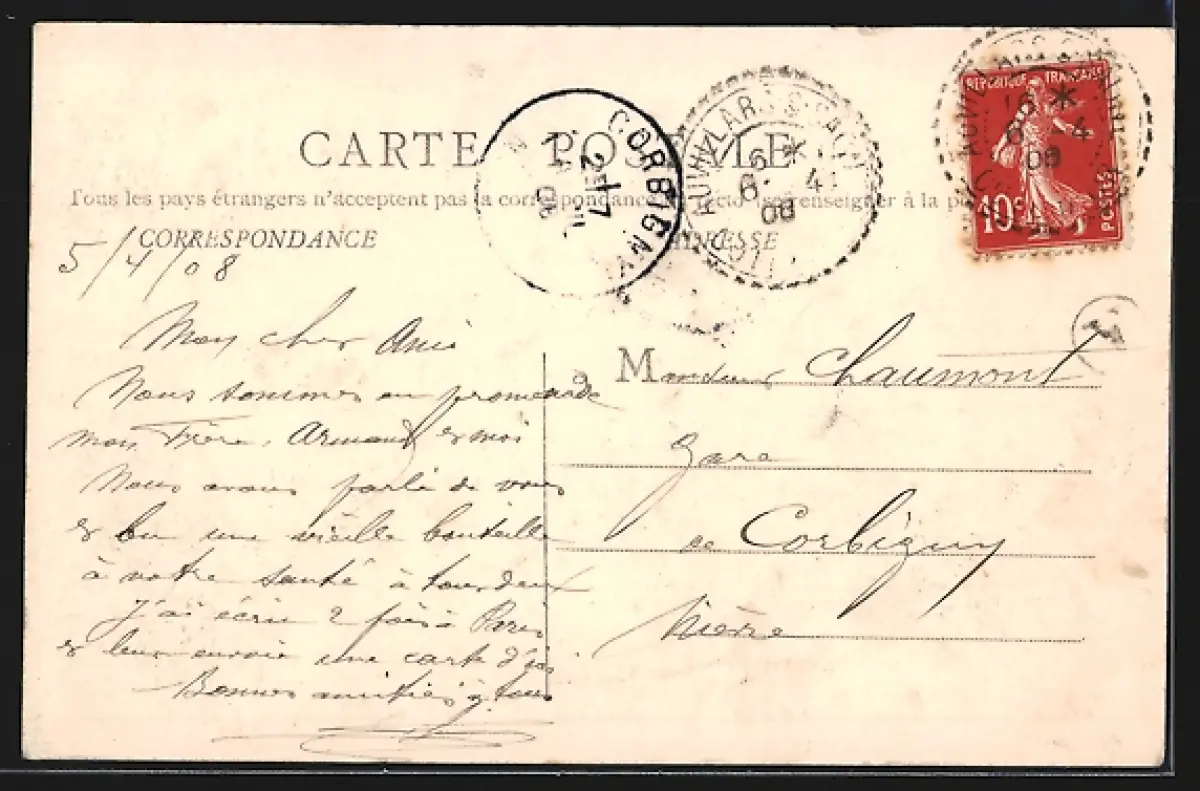 CARTE POSTALE
Tous les pays étrangers n'acceptent pas la correspondance au recto (se renseigner à la
CORRESPONDANCE
ADRESSE
5/4/08
Mon cher Ami
Nous sommes en promenade
mon Frère, Armand & moi
Nous avons parlé de vous
& bu une vieille bouteille
à votre santé à tous deux
J'ai écrit 2 fois à Paris
& leur envoie une carte d'ici
Bonnes amitiés à tous
Monsieur Chaumont
Gare
de Corbigny
Nièvre
REPUBLIQUE FRANÇAISE
10c
POSTES
CORBIGNY
AUVILLARS-S-SAÔNE
6 *
6 - 4
08